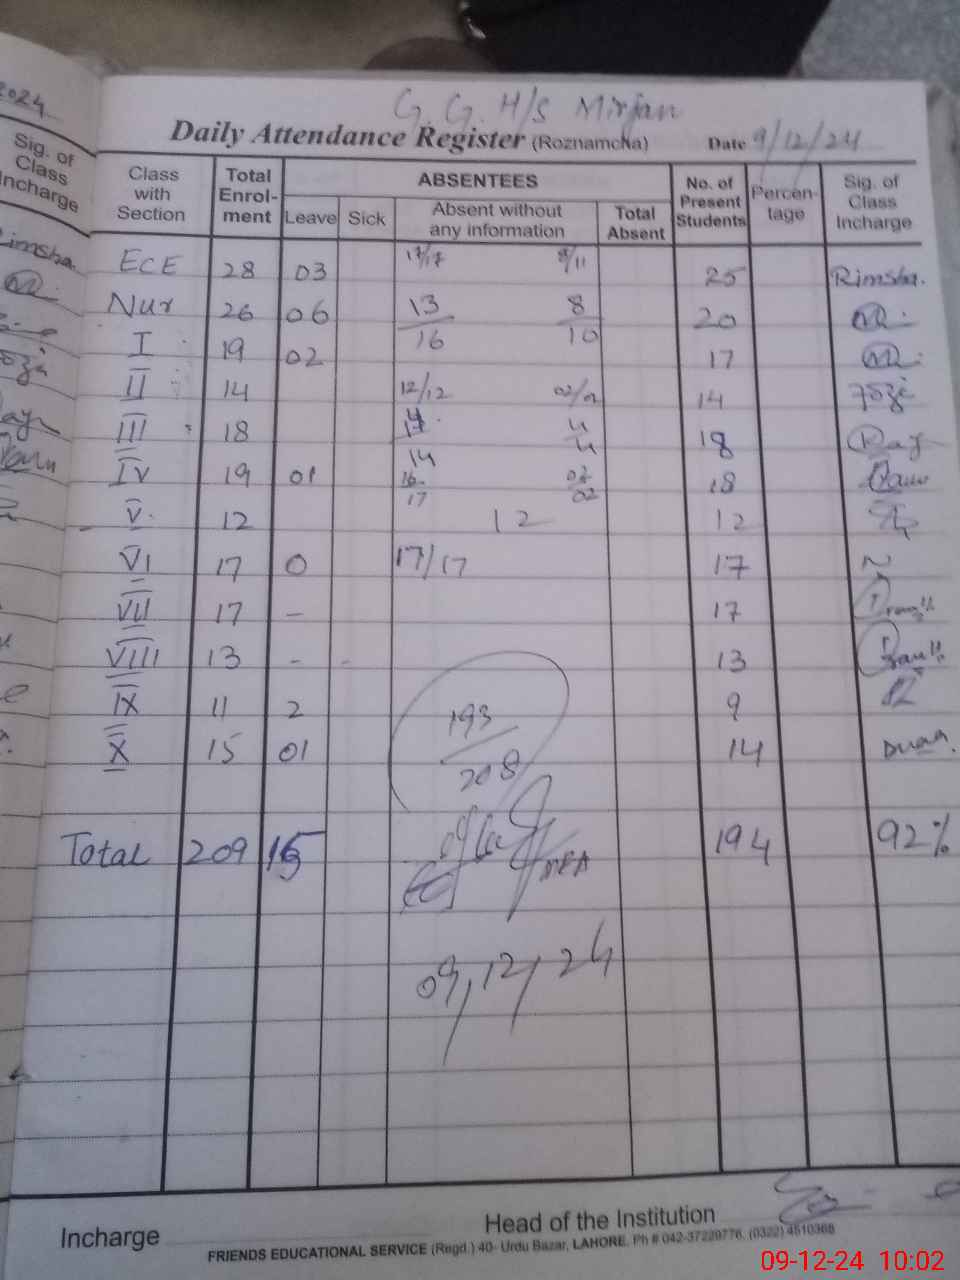 2024
G. G. H/S Mirjan
Daily Attendance Register (Roznamcha) Date 9/12/24
Sig. of Class Incharge
Class with Section Total Enrol-ment ABSENTEES No. of Present Students Percen-tage Sig. of Class Incharge
Leave Sick Absent without any information Total Absent
Rimsha.
ECE 28 03 17/17 8/11 25 Rimsha.
Nur 26 06 13/16 8/10 20
I 19 02 17
II 14 12/12 02/02 14
III 18 14 4/4 18
IV 19 01 16/17 02/02 18
V. 12 12 12
VI 17 0 17/17 17
VII 17 – 17
VIII 13 - - 13
IX 11 2 9
X 15 01 14
193/208
Total 209 15 194 92%
09,12,24
Incharge Head of the Institution
FRIENDS EDUCATIONAL SERVICE (Regd.) 40- Urdu Bazar, LAHORE. Ph # 042-37229776, (0322) 4510368
09-12-24 10:02